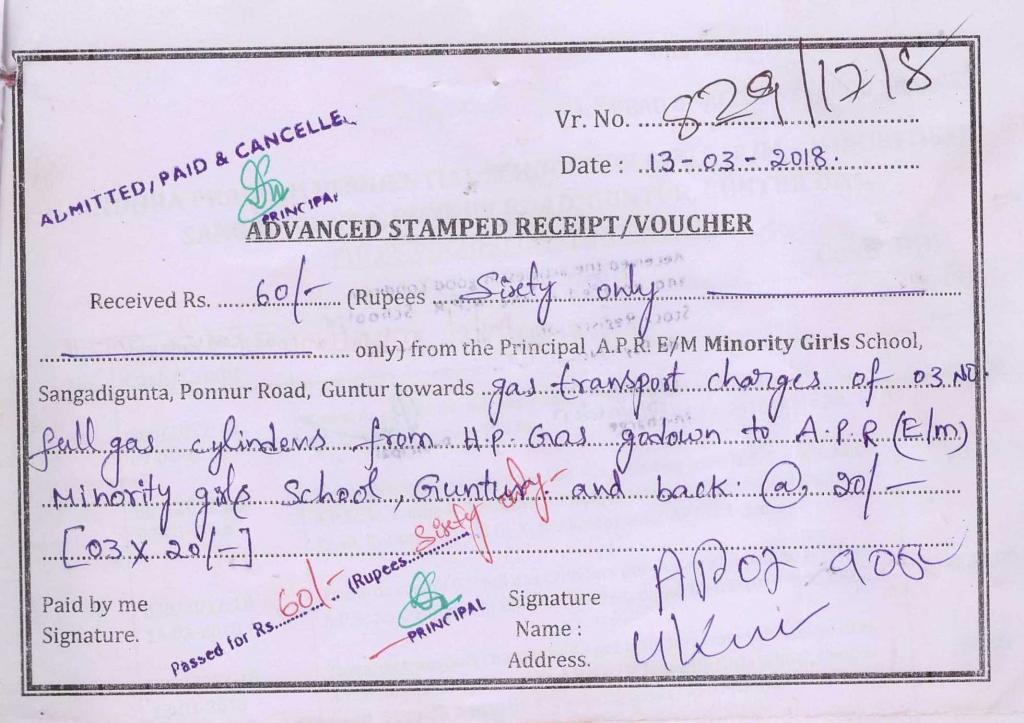 Vr. No. 829/17/8
Date : 13-03-2018.
ADMITTED, PAID & CANCELLE
PRINCIPAL
ADVANCED STAMPED RECEIPT/VOUCHER
Received Rs. 60/- (Rupees Sixty only
only) from the Principal A.P.R. E/M Minority Girls School,
Sangadigunta, Ponnur Road, Guntur towards gas transport charges of 03 NO.
full gas cylinders from H.P. Gas godown to A.P.R (E/m)
Minority girls School, Guntur. and back. @ 20/-
[03 X 20/-]
Passed for Rs. 60/- (Rupees Sixty only-
PRINCIPAL
Paid by me
Signature.
Signature
Name :
Address.